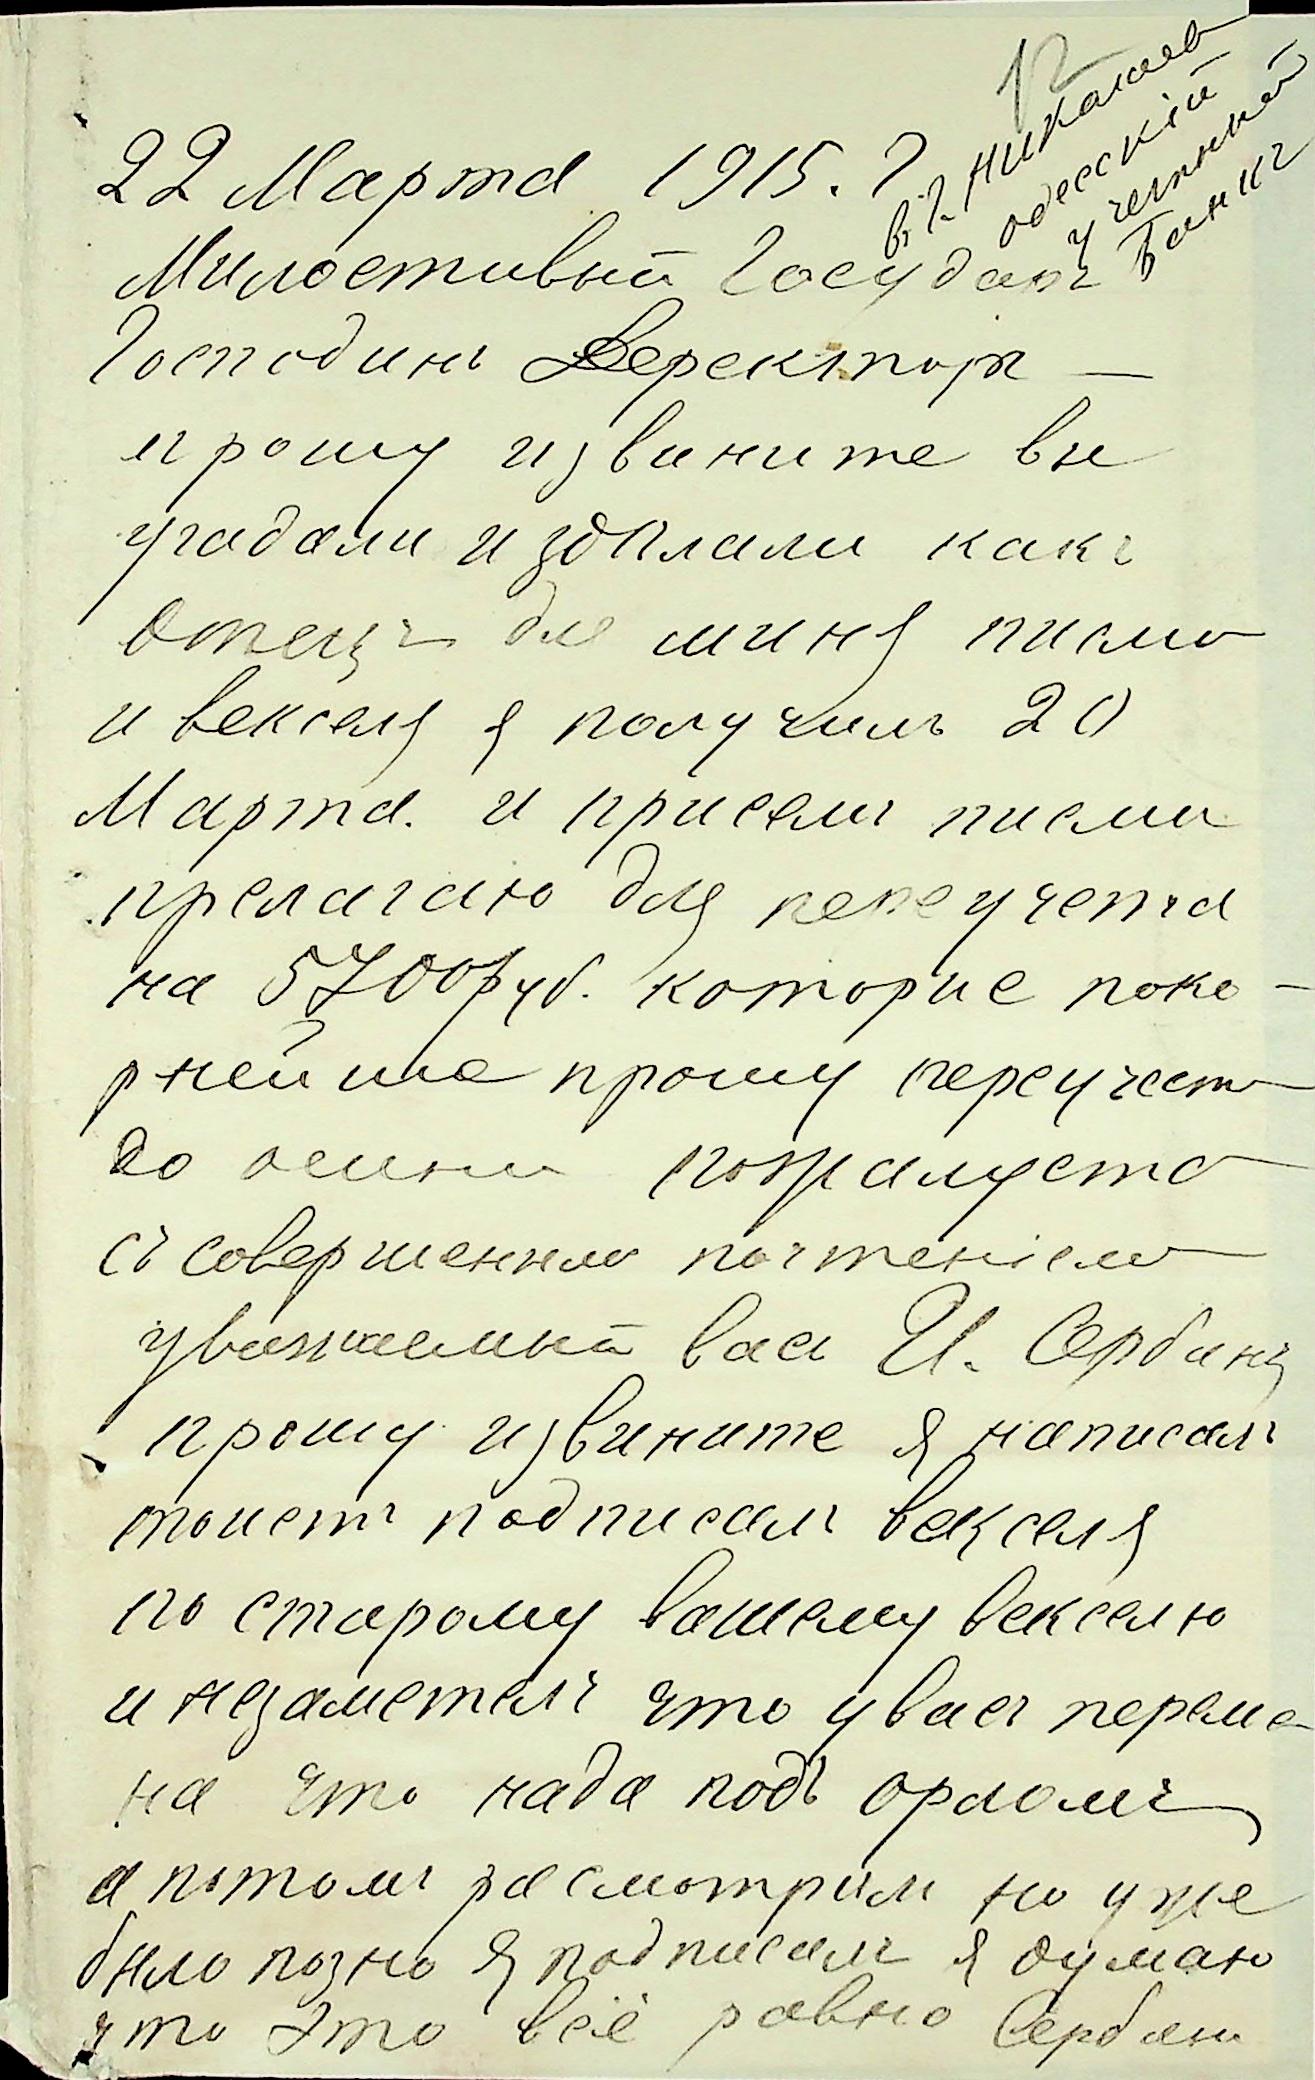 22 Марта 1915. г
в. г. Николаев
одесскій
учетный
банкъ
Милостивый Государъ
Господинъ Деректоръ —
прошу извините вы
угадали издѣлали какъ
Отецъ для миня писмо
и векселя я получилъ 20
Марта. и присемъ писми
прелагаю для переучета
на 5700 руб. которие поко-
рнейше прошу переучест
до осини пожалуста
съ совершенным почтеніем
уважаемый вас И. Сербинъ
прошу извините я написалъ
тоисть подписалъ векселя
по старому вашему векселю
и незаметелъ что у васъ переме-
на что нада подъ орломъ
а потомъ расмотрилъ но уже
било позно я подписалъ я думаю
что это всё равно Сербин